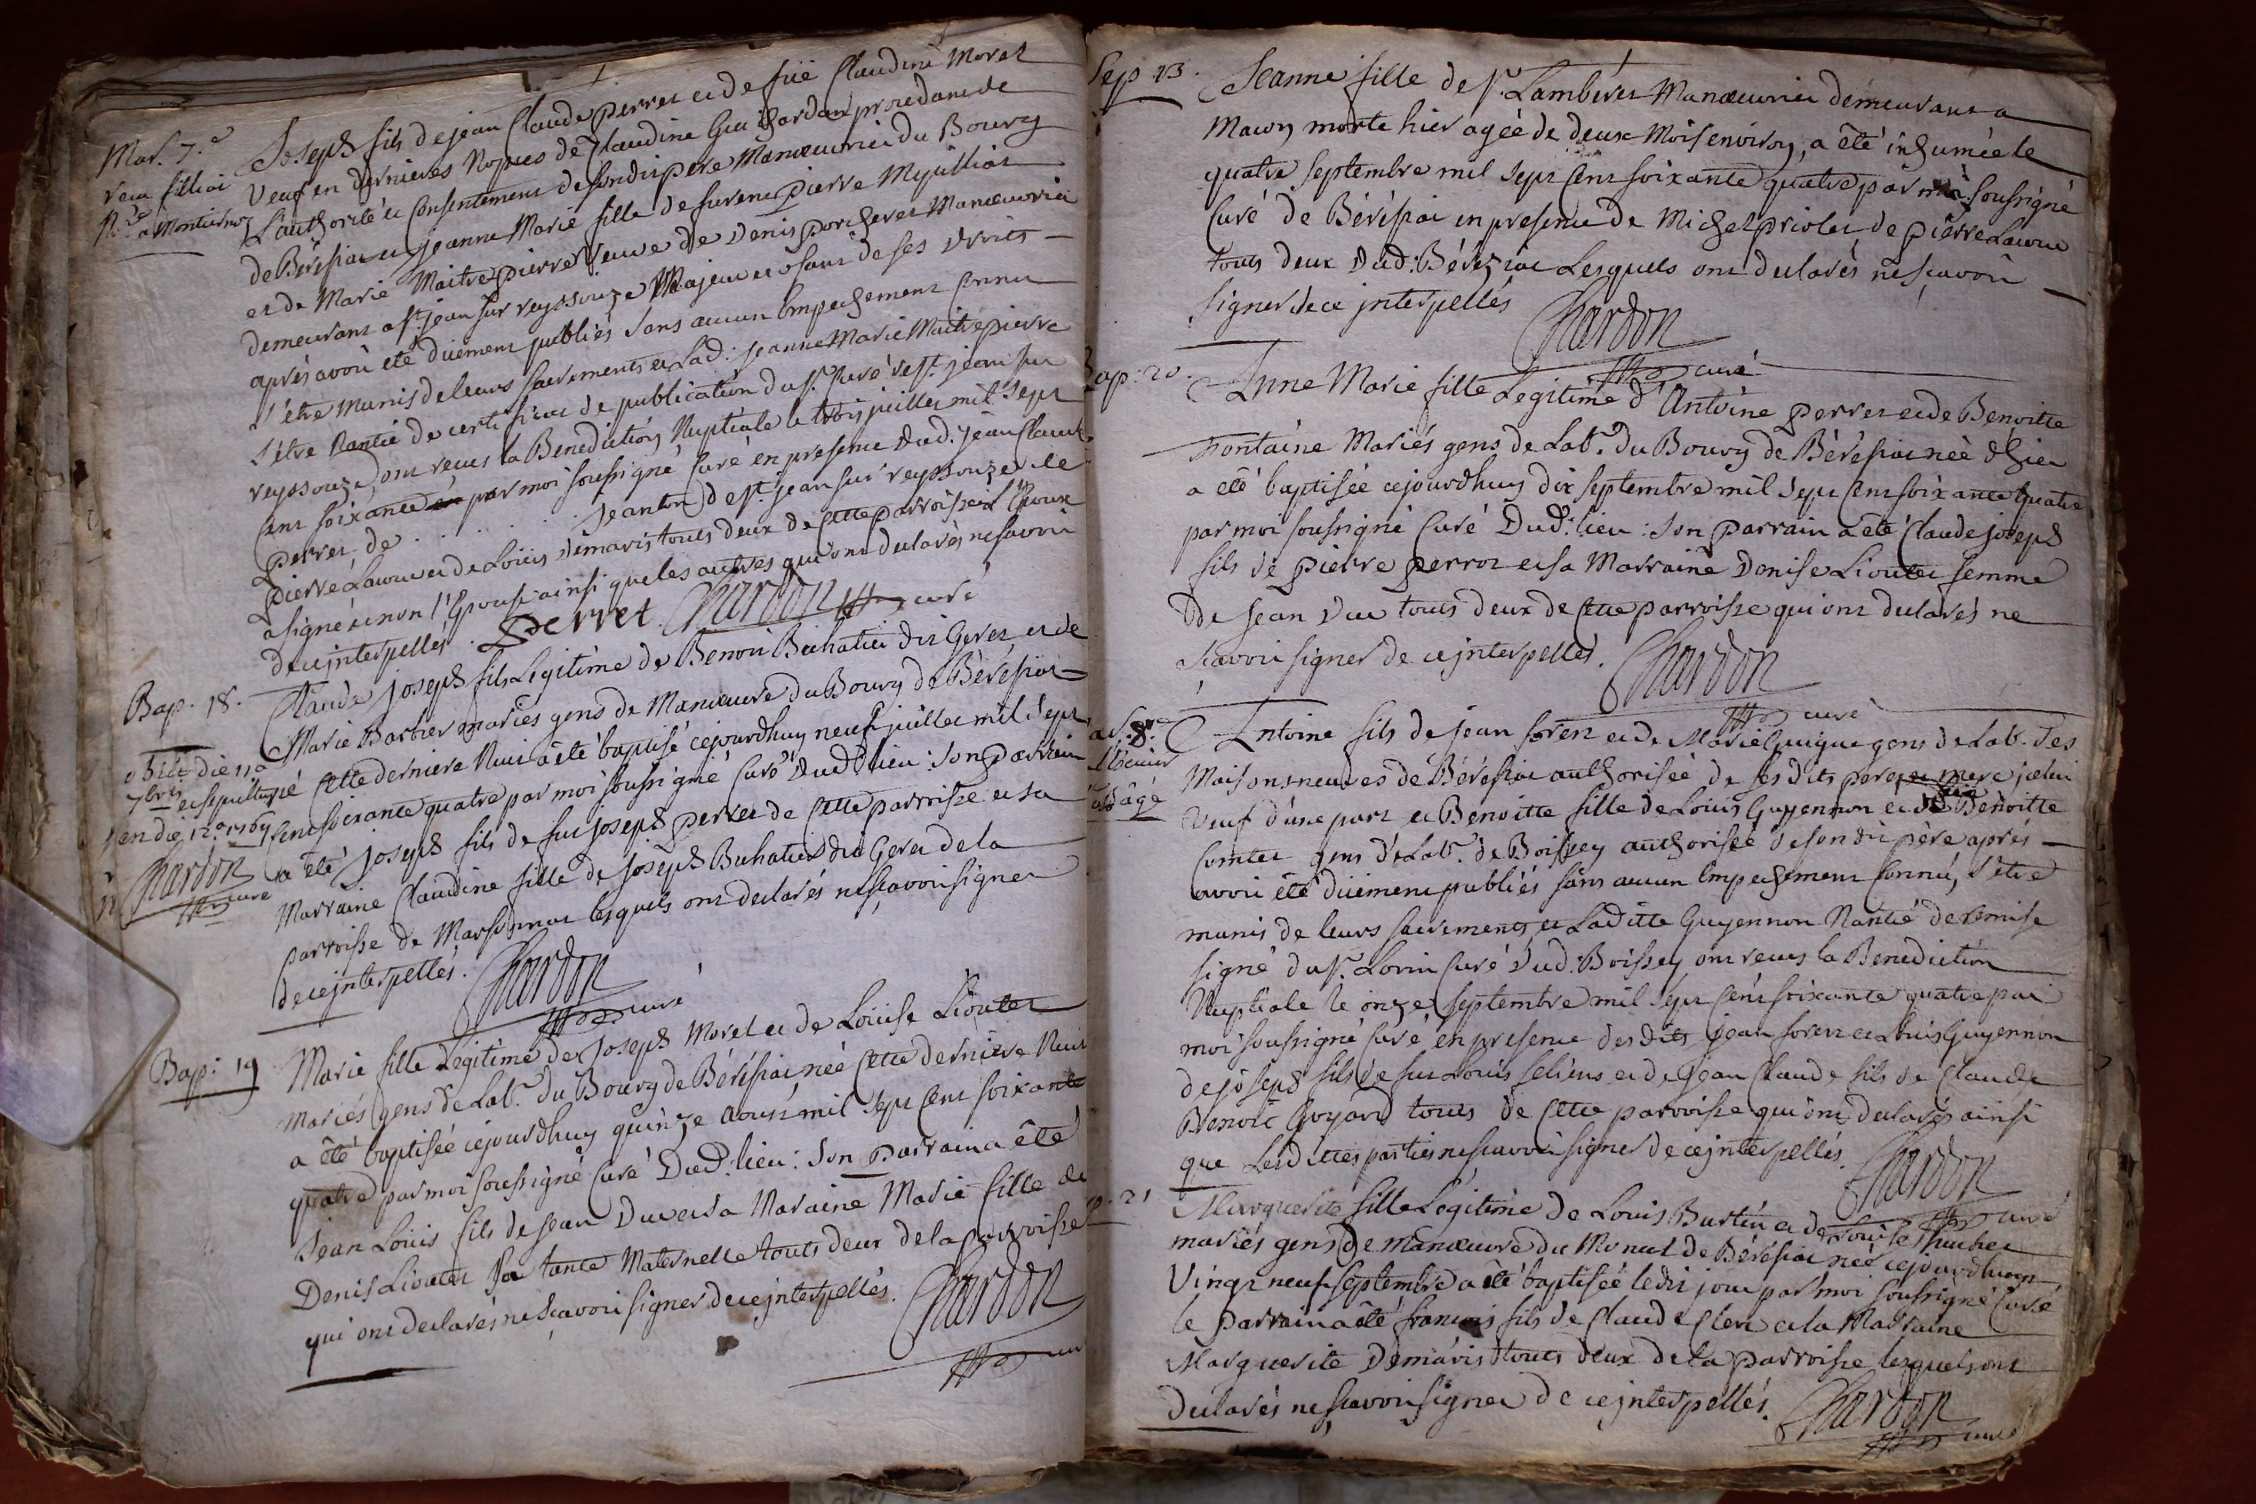 Mar. 7.e
Joseph fils de jean Claude perret et de füe Claudine Morel
veuf en dernieres Nopces de Claudine Guichardan procedant de
L'authorité et Consentement de sondit pere Manœuvrier du Bourg
de Béréziat et jeanne Marie fille de furent pierre Myilliat
et de Marie Maitrepierre veuve de Denis porcheret Manœuvrier
demeurant a st. jean sur reyssouze Majeur et usant de ses droits
après avoir eté düement publiés sans aucun Empechement Connu
s'etre Munis de leurs sacrements et Lad: jeanne Marie Maitrepierre
s'etre Nantie de certificat de publication du sr. Curé de st. jean sur
reyssouze, ont recus la Benediction Nuptiale le trois juillet mil sept
Cent soixante par moi soussigné Curé en presence dud: jean Claude
perret de . . . . . . . jeanton de st. jean sur reyssouze de
pierre Laurent et de Loüis demaris touts deux de Cette parroisse L'Epoux
a signé et non l'Epouse ainsi que les autres qui ont declarés ne scavoir
de ce jnterpellés. Perret. Chardon curé
Bap. 18.
Claude Joseph fils Legitime de Benoit Buhatier dit Geret et de
Marie Barbier mariés gens de Manœuvre du Bourg de Béréziat
né Cette derniere Nuit a été baptisé cejourdhuy neuf juillet mil sept
Cent soixante quatre par moi soussigné Curé dud: lieu: son parrain
a été joseph fils de feu joseph perret de Cette parroisse et sa
Marraine Claudine fille de joseph Buhatier dit Geret de la
parroisse de Marsonnat lesquels ont declarés ne scavoir signer
de ce jnterpellés. Chardon curé
obiit die 11a
7bris et sepultus
Chardon
curé
Bap: 19
Marie fille Legitime de joseph Morel et de Loüise Lioutet
Mariés gens de Lab.r du Bourg de Béréziat née Cette derniere Nuit
a été baptisée cejourdhuy quinze aoust mil sept Cent soixante
quatre par moi soussigné Curé Dud: lieu: son parrain a été
Jean Loüis fils de jean Duc et sa Maraine Marie fille de
Denis Lioutet sa tante Maternelle touts deux de la parroisse
qui ont declarés ne scavoir signer de ce jnterpellés. Chardon
Sep. 13.
Jeanne fille de sr. Lamberet Manœuvrier demeurant a
Macon morte hier agée de deux Mois environ, a été inhumée le
quatre septembre mil sept Cent soixante quatre par moi soussigné
Curé de Béréziat en presence de Michel priolet de pierre Laurent
touts deux dud: Béréziat Lesquels ont declarés ne scavoir
signer de ce jnterpellés Chardon
curé
Bap. 20.
Anne Marie fille Legitime d'Antoine perret et de Benoitte
Fontaine Mariés gens de Lab.r du Bourg de Béréziat née d'hier
a été baptisée cejourdhuy dix septembre mil sept Cent soixante quatre
par moi soussigné Curé Dud: lieu: son parrain a été Claude joseph
fils de pierre perrot et sa Marraine Denise Lioutet femme
de jean Duc touts deux de Cette parroisse qui ont declarés ne
scavoir signer de ce jnterpellés. Chardon
curé
8.e
Antoine fils de jean forest et de Marie Guigue gens de Lab. des
Maisons neuves de Béréziat authorisée de ses dits pere et mere
veuf d'une part et Benoitte fille de Loüis Guyennon et de Benoitte
Comtet gens de Lab.r de Boissey authorisée de son dit père après
avoir été düement publiés sans aucun Empechement Connu, s'etre
munis de leurs sacrements et Laditte Guyennon Nantie de remise
signé du sr. Lorin Curé dud: Boissey ont recus la Benediction
Nuptiale le onze septembre mil sept Cent soixante quatre par
moi soussigné Curé en presence desdits jean forest et Loüis Guyennon
de joseph fils de feu Loüis feliens et de jean Claude fils de Claude
Benoit Goyard touts de Cette parroisse qui ont declarés ainsi
que Lesdittes parties ne scavoir signer de ce jnterpellés. Chardon
curé
21
Marguerite fille Legitime de Loüis Burtin et de Loüise
mariés gens de manœuvre du Monet de Béréziat née cejourdhuy
Vingt neuf septembre a été baptisée ledit jour par moi soussigné Curé
le parrain a été françois fils de Claude Clerc et la Marraine
Marguerite Demaris touts deux de la parroisse lesquels ont
declarés ne scavoir signer de ce jnterpellés. Chardon
curé